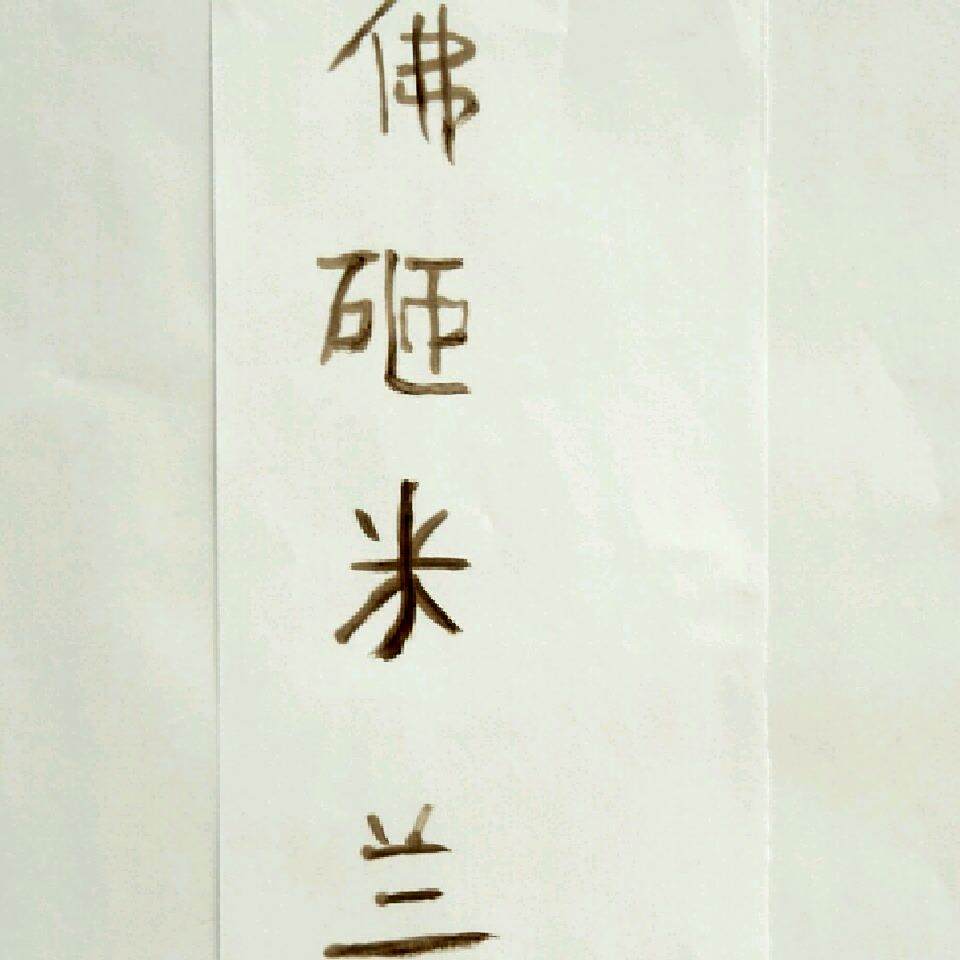 佛砸米兰